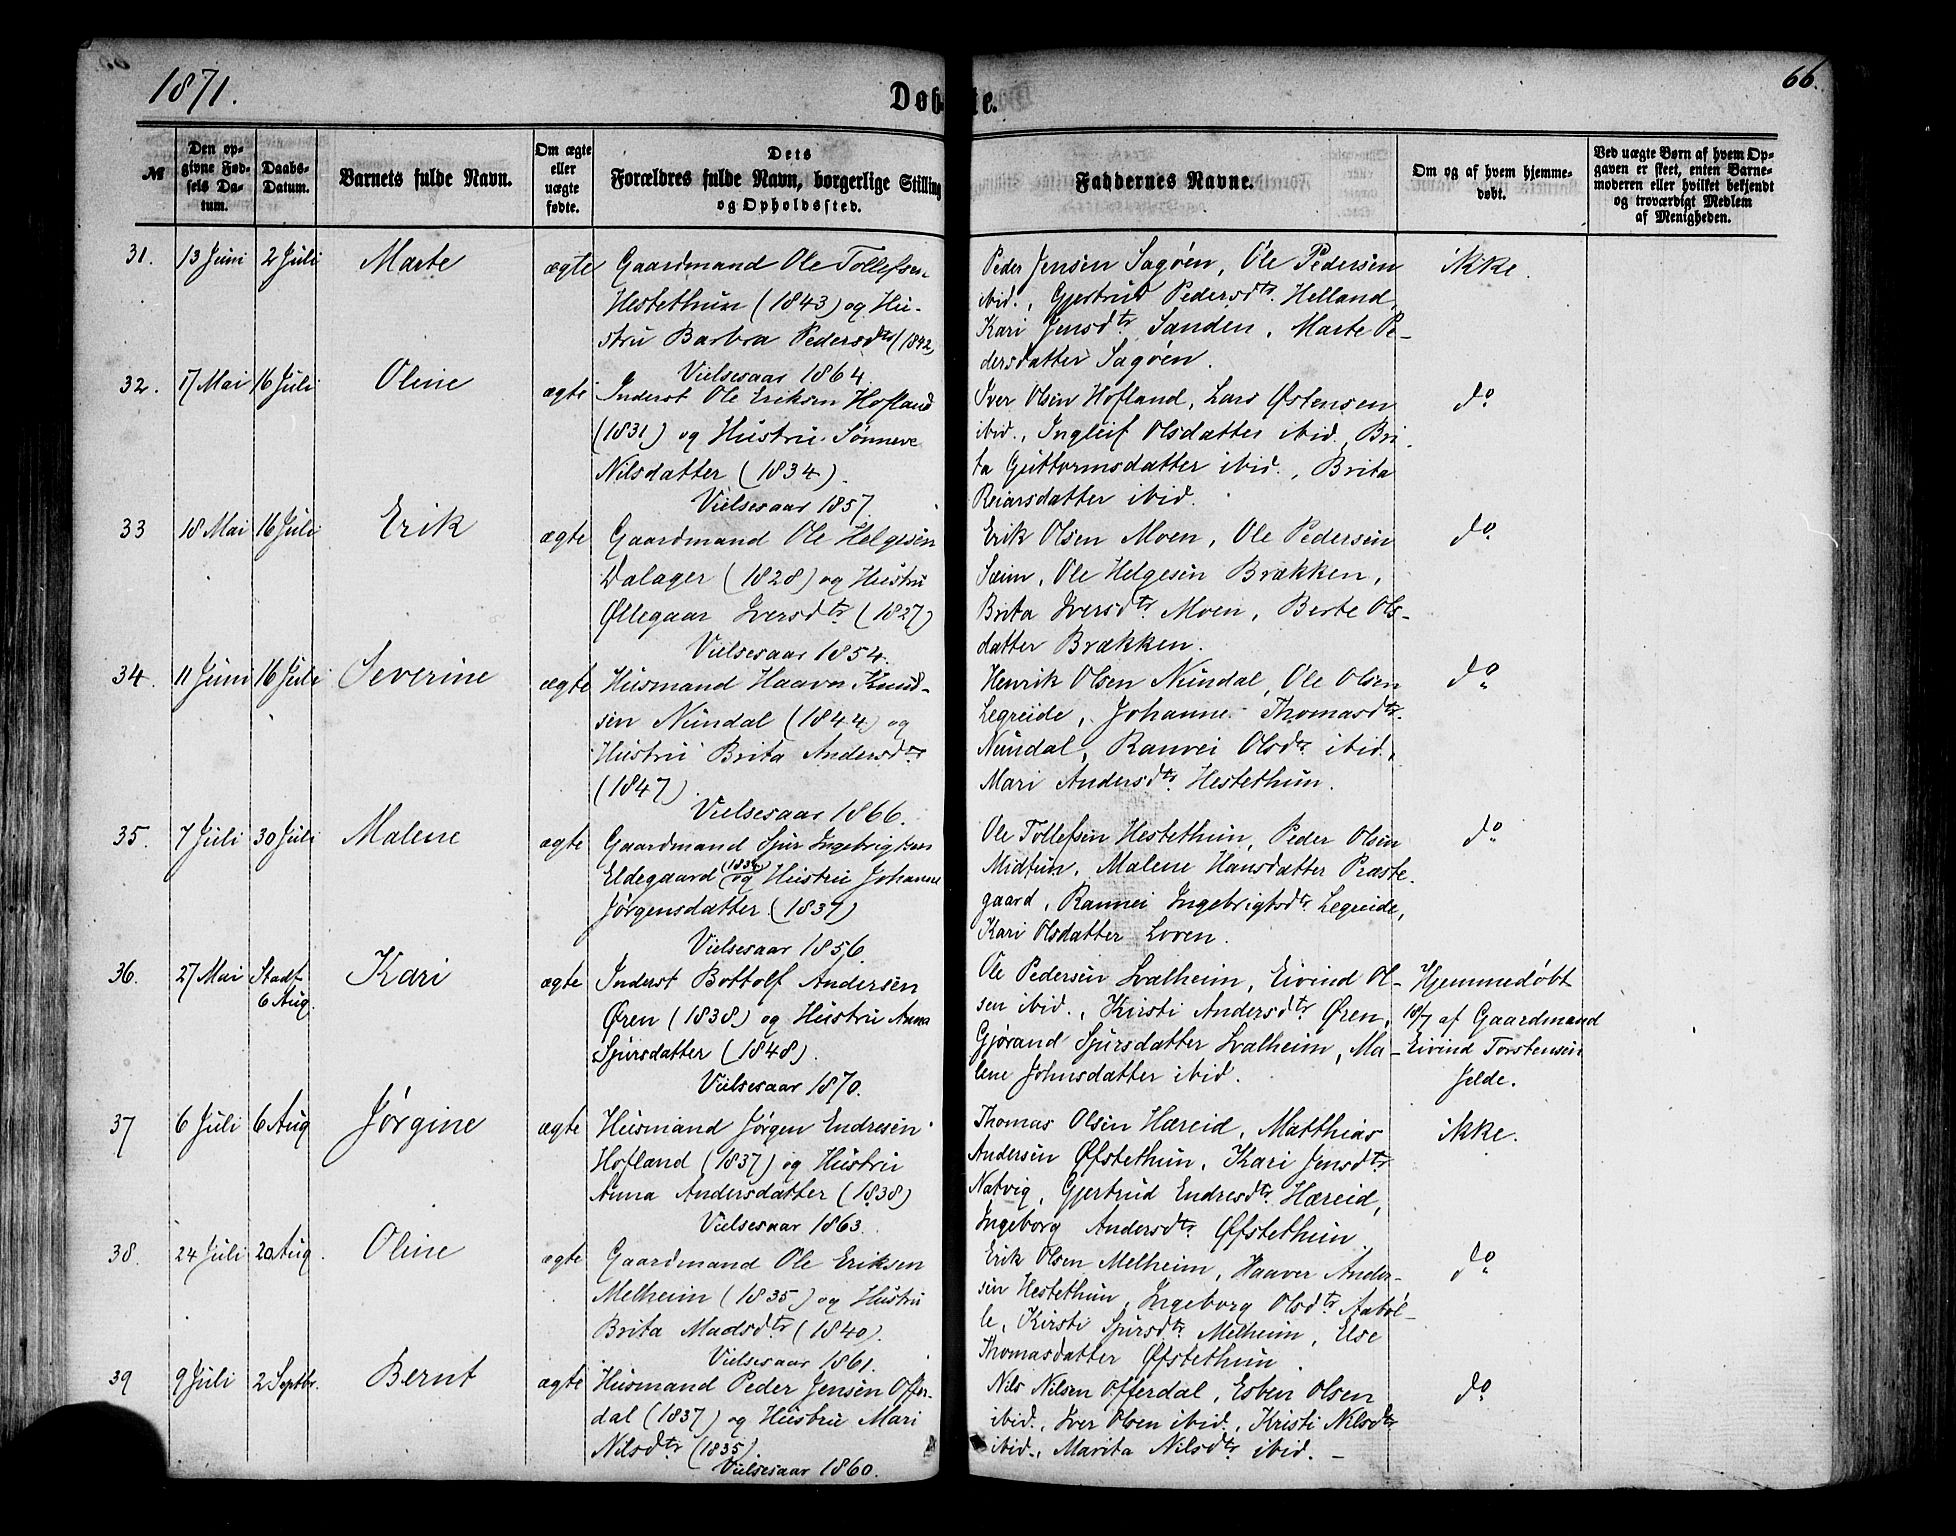 1871.
Døbte.
66.
№
Den op-
givne Fød-
sels Da-
tum.
Daabs-
Datum.
Barnets fulde Navn.
Om ægte
eller
uægte
fødte.
Dets
Forældres fulde Navn, borgerlige Stilling
og Opholdssted.
Faddernes Navne.
Om og af hvem hjemme-
døbt.
Ved uægte Børn af hvem Op-
gaven er skeet, enten Barne-
moderen eller hvilket bekjendt
og troværdigt Medlem
af Menigheden.
31. 13 Juni 2 Juli Marte ægte Gaardmand Ole Tollefsen
Hestethun (1843) og Hu-
stru Barbra Pedersdtr (1842)
Vielsesaar 1864.
Peder Jensen Sagøen, Ole Pedersen
ibid., Gjertrud Pedersdtr. Helland,
Kari Jensdtr Sanden, Marte Pe-
dersdatter Sagøen.
ikke.
32. 17 Mai 16 Juli Oline ægte Inderst Ole Eriksen Hofland
(1831) og Hustru Sønneve
Nilsdatter (1834).
Vielsesaar 1857.
Iver Olsen Hofland, Lars Østensen
ibid., Ingleif Olsdatter ibid., Bri-
ta Guttormsdatter ibid., Brita
Reiarsdatter ibid.
do
33 18 Mai 16 Juli Erik ægte Gaardmand Ole Helgesen
Dalager (1828) og Hustru
Øllegaar Iversdtr. (1827)
Vielsesaar 1854.
Erik Olsen Moen, Ole Pedersen
Sæim, Ole Helgesen Brækken,
Brita Iversdtr Moen, Berte Ols-
datter Brækken.
do
34. 11 Juni 16 Juli Severine ægte Husmand Haavar Knud-
sen Nundal (1844) og
Hustru Brita Andersdtr
(1847).
Vielsesaar 1866.
Henrik Olsen Nundal, Ole Olsen
Legreide, Johanne Thomasdtr.
Nundal, Ranvei Olsdtr ibid.,
Mari Andersdtr. Hestethun.
do
35. 7 Juli 30 Juli Malene ægte Gaardmand Sjur Ingebrigtsen
Eldegaard (1834) og Hustru Johanne
Jørgensdatter (1837)
Vielsesaar 1856.
Ole Tollefsen Hestethun, Peder Olsen
Midtun, Malene Hansdatter Præste-
gaard, Ranvei Ingebrigtsdtr. Legreide,
Kari Olsdatter Loven.
do
36. 27 Mai Stadf. 6 Aug. Kari ægte Inderst Bottolf Andersen
Øren (1838) og Hustru Anna
Sjursdatter (1848).
Vielsesaar 1870.
Ole Pedersen Svalheim, Eivind Ol-
sen ibid., Kirsti Andersdtr Øren,
Gjørand Sjursdatter Svalheim, Ma-
lene Johnsdatter ibid.
Hjemmedøbt
10/7 af Gaardmand
Eivind Torstensen
Jelde.
37 6 Juli 6 Aug Jørgine ægte Husmand Jørgen Endresen
Hofland (1837) og Hustru
Anna Andersdatter (1838)
Vielsesaar 1863.
Thomas Olsen Hæreid, Matthias
Andersen Øfstethun, Kari Jensdtr
Natvig, Gjertrud Endresdtr. Hæreid,
Ingeborg Andersdtr. Øfstethun
ikke.
38. 24 Juli 20 Aug. Oline ægte Gaardmand Ole Eriksen
Melheim (1835) og Hustru
Brita Madsdtr (1840).
Vielsesaar 1861.
Erik Olsen Melheim, Haaver Ander-
sen Hestethun, Ingeborg Olsdtr Aabøl-
le, Kirsti Sjursdtr. Melheim, Else
Thomasdatter Øfstethun.
do
39 9 Juli 2 Septbr. Bernt ægte Husmand Peder Jensen Offer-
dal (1837) og Hustru Mari
Nilsdtr (1835).
Vielsesaar 1860.
Nils Nilsen Offerdal, Esben Olsen
ibid., Iver Olsen ibid., Kristi Nilsdtr
ibid., Marita Nilsdtr ibid. –
do